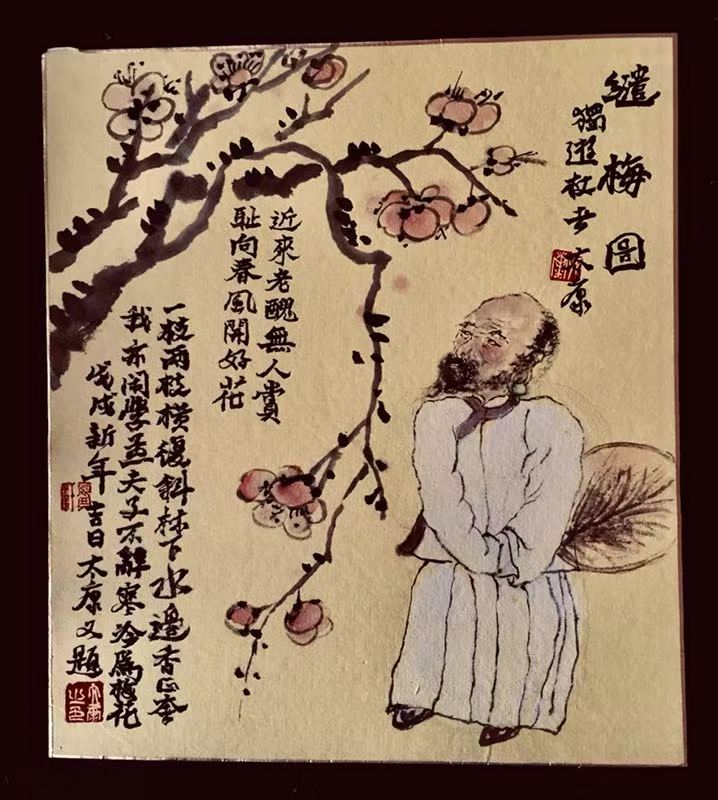 繾梅圖
獨遊杖者太康
近來老醜無人賞
耻向春風開好花
一枝兩枝橫復斜林下水邊香正奢
我亦閑學孟夫子不辭寒冷為梅花
戊戌新年吉日太康又題